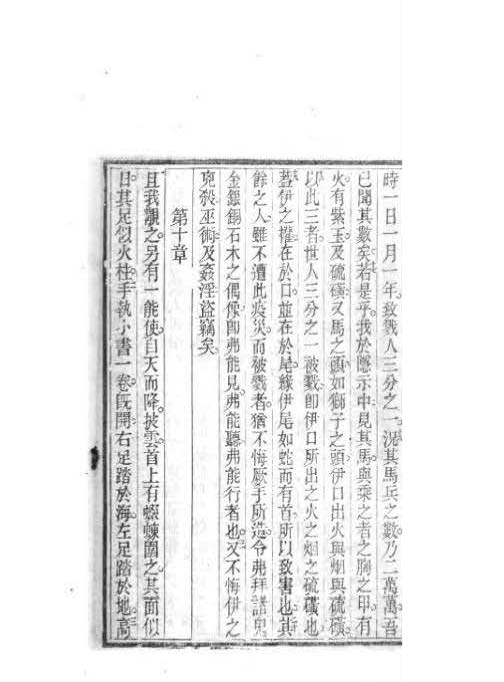 時一日一月一年致戮人三分之一。況其馬兵之數乃二萬萬。吾
已聞其數矣。若是乎。我於隱示中見其馬與乘之者之胸之甲有
火有紫玉及硫磺。又馬之頭如獅子之頭。伊口出火與烟與硫磺。
以此三者。世人三分之一被戮。卽伊口所出之火之烟之硫磺也。
蓋伊之權在於口並在於尾。緣伊尾如蛇而有首。所以致害也。其
餘之人。雖不遭此疫災而被戮者。猶不悔厥手所造。令弗拜諸鬼
金銀銅石木之偶像。卽弗能見。弗能聽。弗能行者也。又不悔伊之
兇殺巫術及姦淫盜竊矣。
第十章
且我觀之。另有一能使。自天而降。披雲。首上有蝃蝀圍之。其面似
日。其足似火柱。手執小書一卷既開。右足踏於海。左足踏於地。高